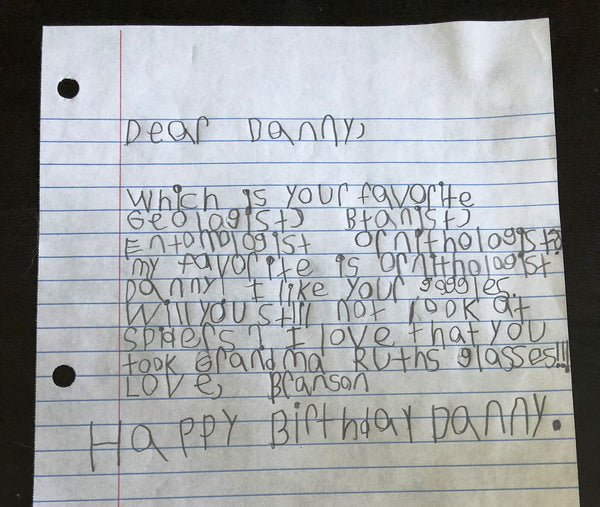 Dear Danny,
Which is your favorite
Geologist, Btanist,
Entomologist Ornithologist?
my favorite is ornithologist
Danny I like your goggles.
Will you still not look at
spiders? I love that you
took Grandma Ruths glasses!!!
LOVE, Branson
Happy Birthday Danny.